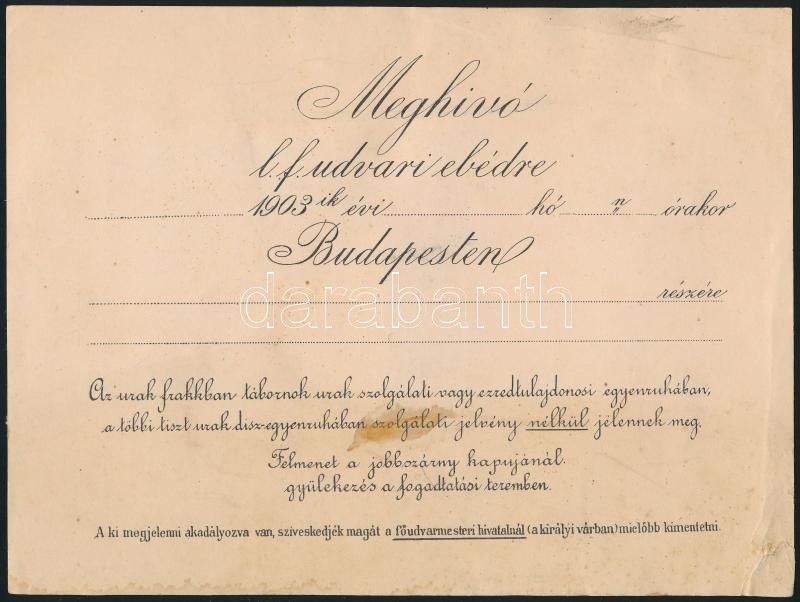 Meghivó
l. f. udvari ebédre
1903 ik évi hó n órakor
Budapesten
részére
darabanth
Az urak frakkban tábornok urak szolgálati vagy ezredtulajdonosi egyenruhában,
a többi tiszt urak disz-egyenruhában szolgálati jelvény nélkül jelennek meg.
Felmenet a jobbszárny kapujánál.
gyülekezés a fogadtatási teremben.
A ki megjelenni akadályozva van, sziveskedjék magát a főudvarmesteri hivatalnál (a királyi várban) mielőbb kimentetni.